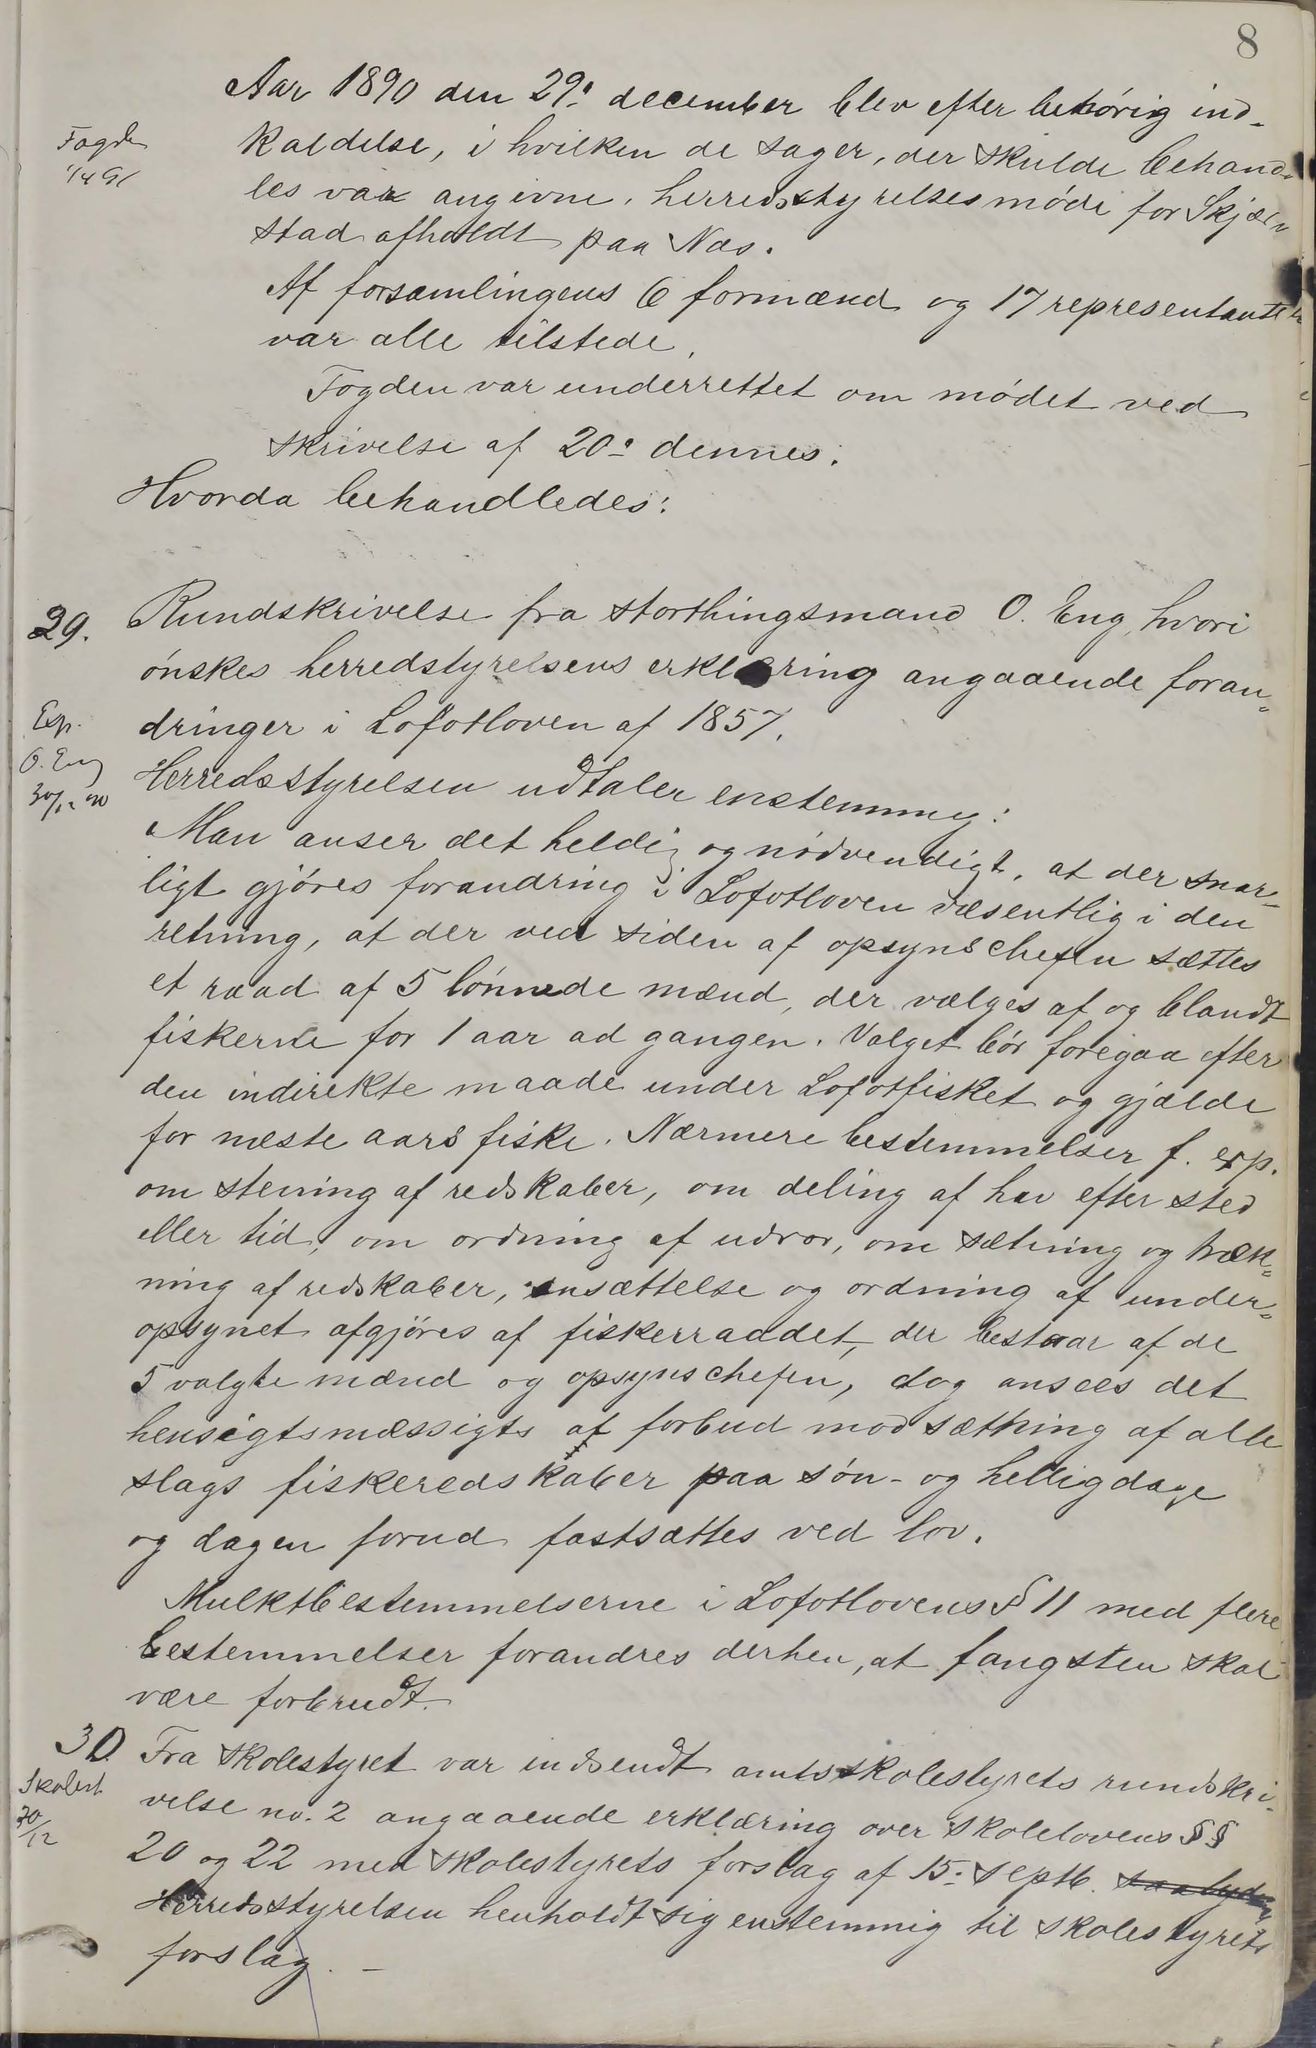 8
Aar 1890 den 29: december blev efter behørig ind-
Fogden
1/4 91
kaldelse, i hvilken de sager, der skulde behand-
les var angivne, herredsstyrelsesmøde for Skjer-
stad afholdt paa Næs.
Af forsamlingens 6 formænd og 17 representanter
var alle tilstede.
Fogden var underrettet om mødet ved
skrivelse af 20: dennes.
Hvorda behandledes:
29.
Rundskrivelse fra storthingsmand O. Eng, hvori
ønskes herredstyrelsens erklæring angaaende foran-
Exp.
O. Eng
30/12 90
dringer i Lofotloven af 1857.
Herredsstyrelsen udtaler enstemmig:
Man anser det heldig og nødvendigt, at der snar-
ligt gjøres forandring i Lofotloven væsentlig i den
retning, at der ved siden af opsynschefen sættes
et raad af 5 lønnede mænd, der vælges af og blandt
fiskerne for 1 aar ad gangen. Valget bør foregaa efter
den indirekte maade under Lofotfisket og gjælde
for næste aars fiske. Nærmere bestemmelser f. exp.
om stening af redskaber, om deling af hav efter sted
eller tid, om ordning af udror, om sætning og træk-
ning af redskaber, ansættelse og ordning af under-
opsynet afgjøres af fiskerraadet, der bestaar af de
5 valgte mænd og opsynschefen, dog ansees det
hensigtsmæssigts at forbud mod sætning af alle
slags fiskeredskaber paa søn- og helligdage
og dagen forud fastsættes ved lov.
Mulktbestemmelserne i Lofotlovens § 11 med flere
bestemmelser forandres derhen, at fangsten skal
være forbrudt.
30.
Skolest
30/12
Fra skolestyret var indsendt amtsskolestyrets rundskri-
velse no. 2 angaaende erklæring over skolelovens §§
20 og 22 med skolestyrets forslag af 15: septb. saalyden
Herredsstyrelsen henholdt sig enstemmig til skolestyrets
forslag. -